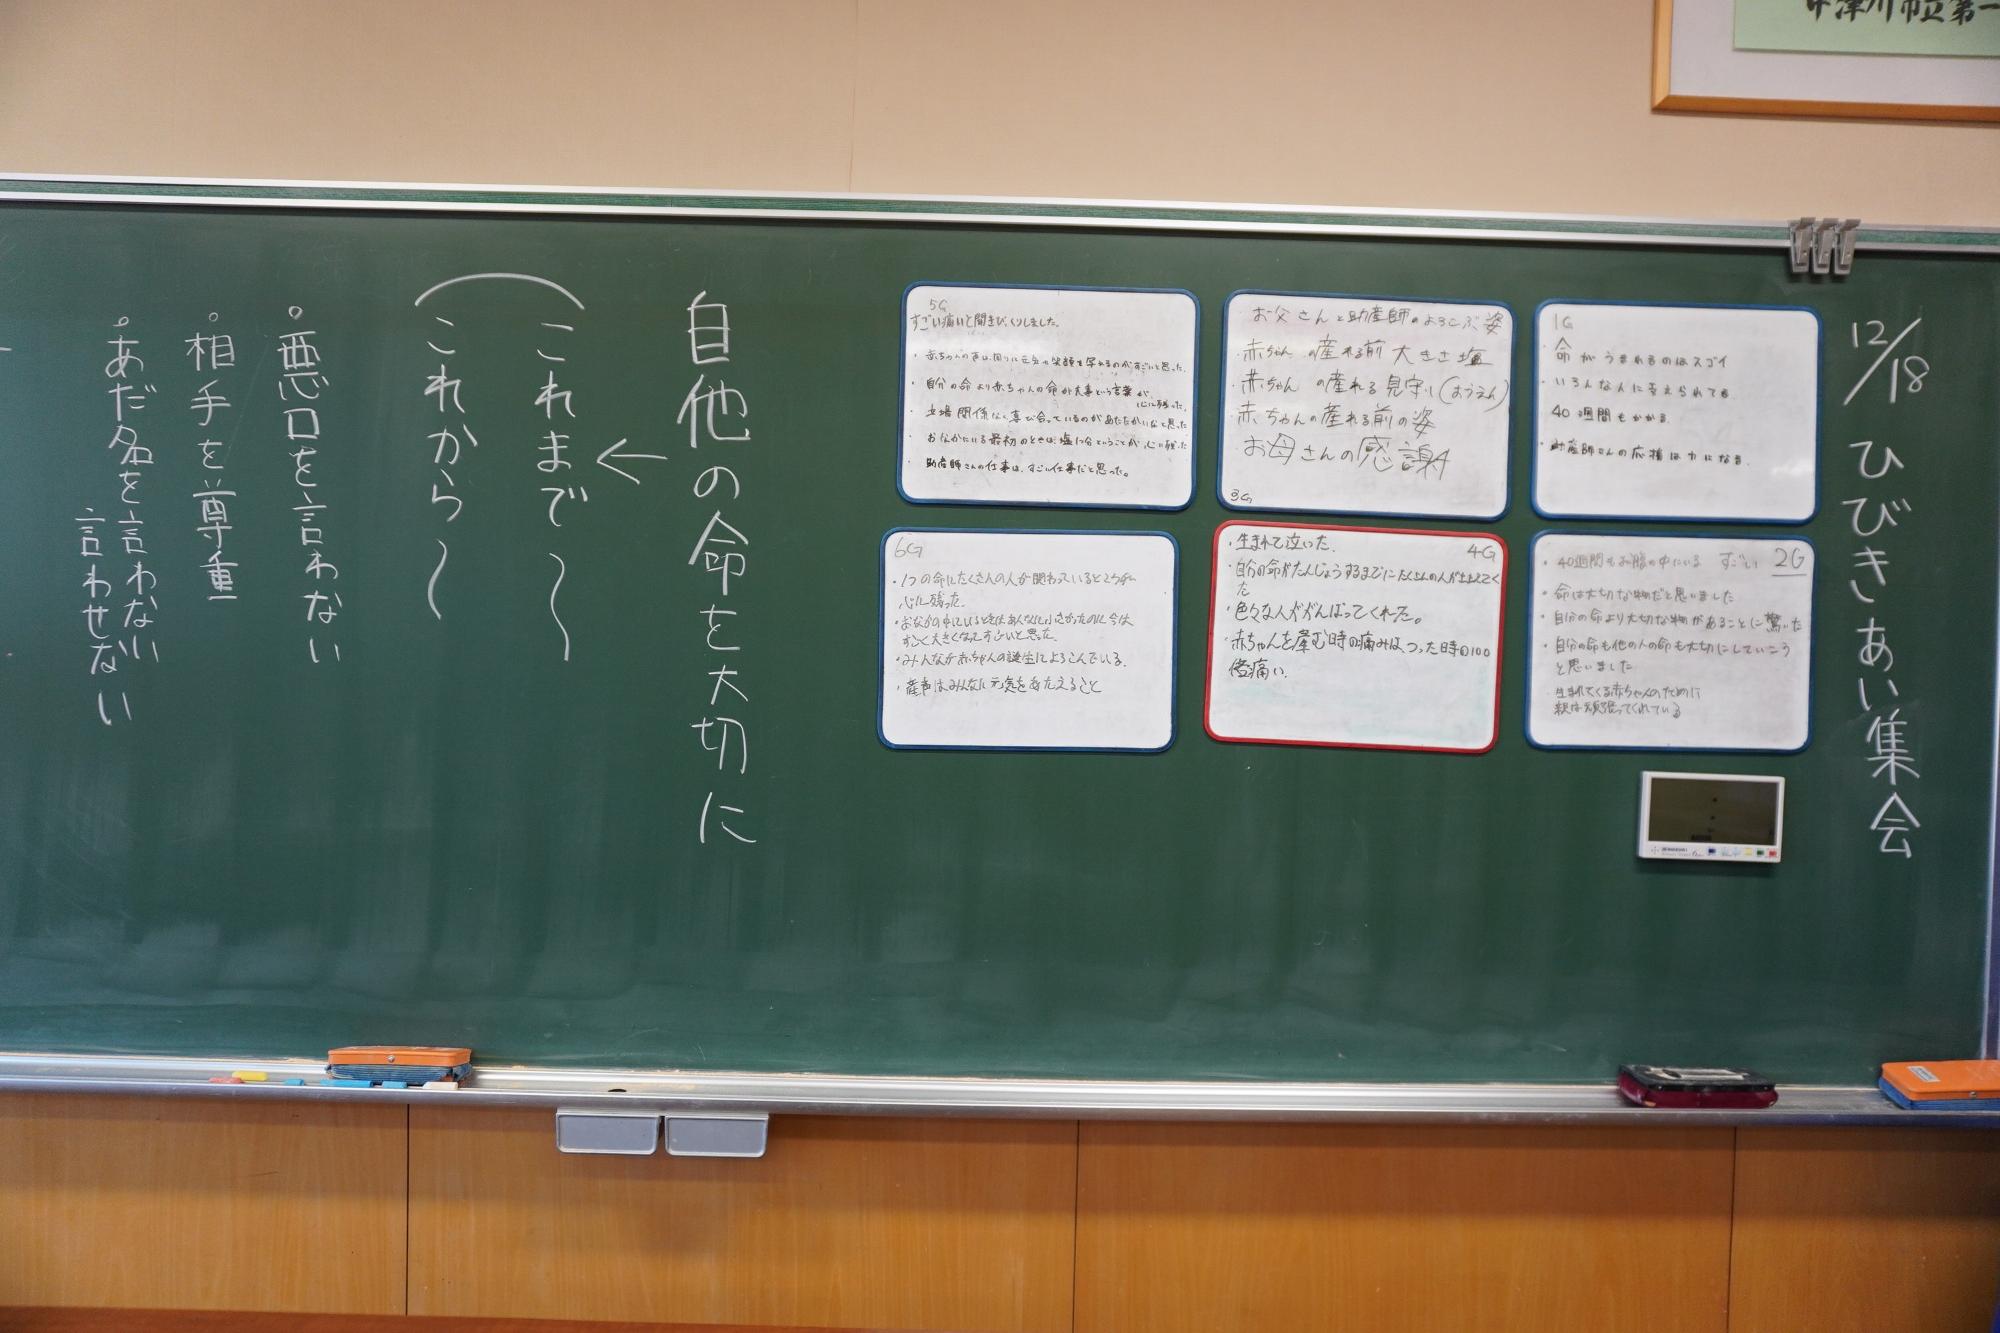 中津川市立第一
12/18 ひびきあい集会
1G
命がうまれるのはスゴイ
いろんな人に支えられてる
40週間もかかる
助産師さんの応援は力になる
2G
・40週間もお腹の中にいる すごい
・命は大切な物だと思いました
・自分の命より大切な物があることに驚いた
・自分の命も他の人の命も大切にしていこう
と思いました
生まれてくる赤ちゃんのために
親は頑張ってくれている
お父さんと助産師のよろこぶ姿
・赤ちゃんの産れる前 大きさ塩
・赤ちゃんの産れる見守り(おうえん)
・赤ちゃんの産れる前の姿
お母さんの感謝
3G
4G
・生まれて泣いた.
・自分の命がたんじょうするまでにたくさんの人が支えてく
た
・色々な人ががんばってくれた。
・赤ちゃんを産む時の痛みは、つった時の100
倍痛い.
5G
すごい痛いと聞きびっくりしました。
・赤ちゃんの声は、周りに元気や笑顔を
のがすごいと思った.
・自分の命より赤ちゃんの命が大事という言葉が
心に残った。
・立場関係なく喜び合っているのがあたたかいなと思った
・おなかにいる最初のときは、塩1つ分ということが心に残った
・助産師さんの仕事は、すごい仕事だと思った。
6G
・1つの命にたくさんの人が関わっているところが
心に残った.
・おなかの中にいるときはあんなに小さかったのに今は
すごく大きくなってすごいと思った.
・みんなが赤ちゃんの誕生によろこんでいる.
・産声はみんなに元気をあたえること
自他の命を大切に
←
これまで〜
これから〜
・悪口を言わない
・相手を尊重
・あだ名を言わない
言わせない